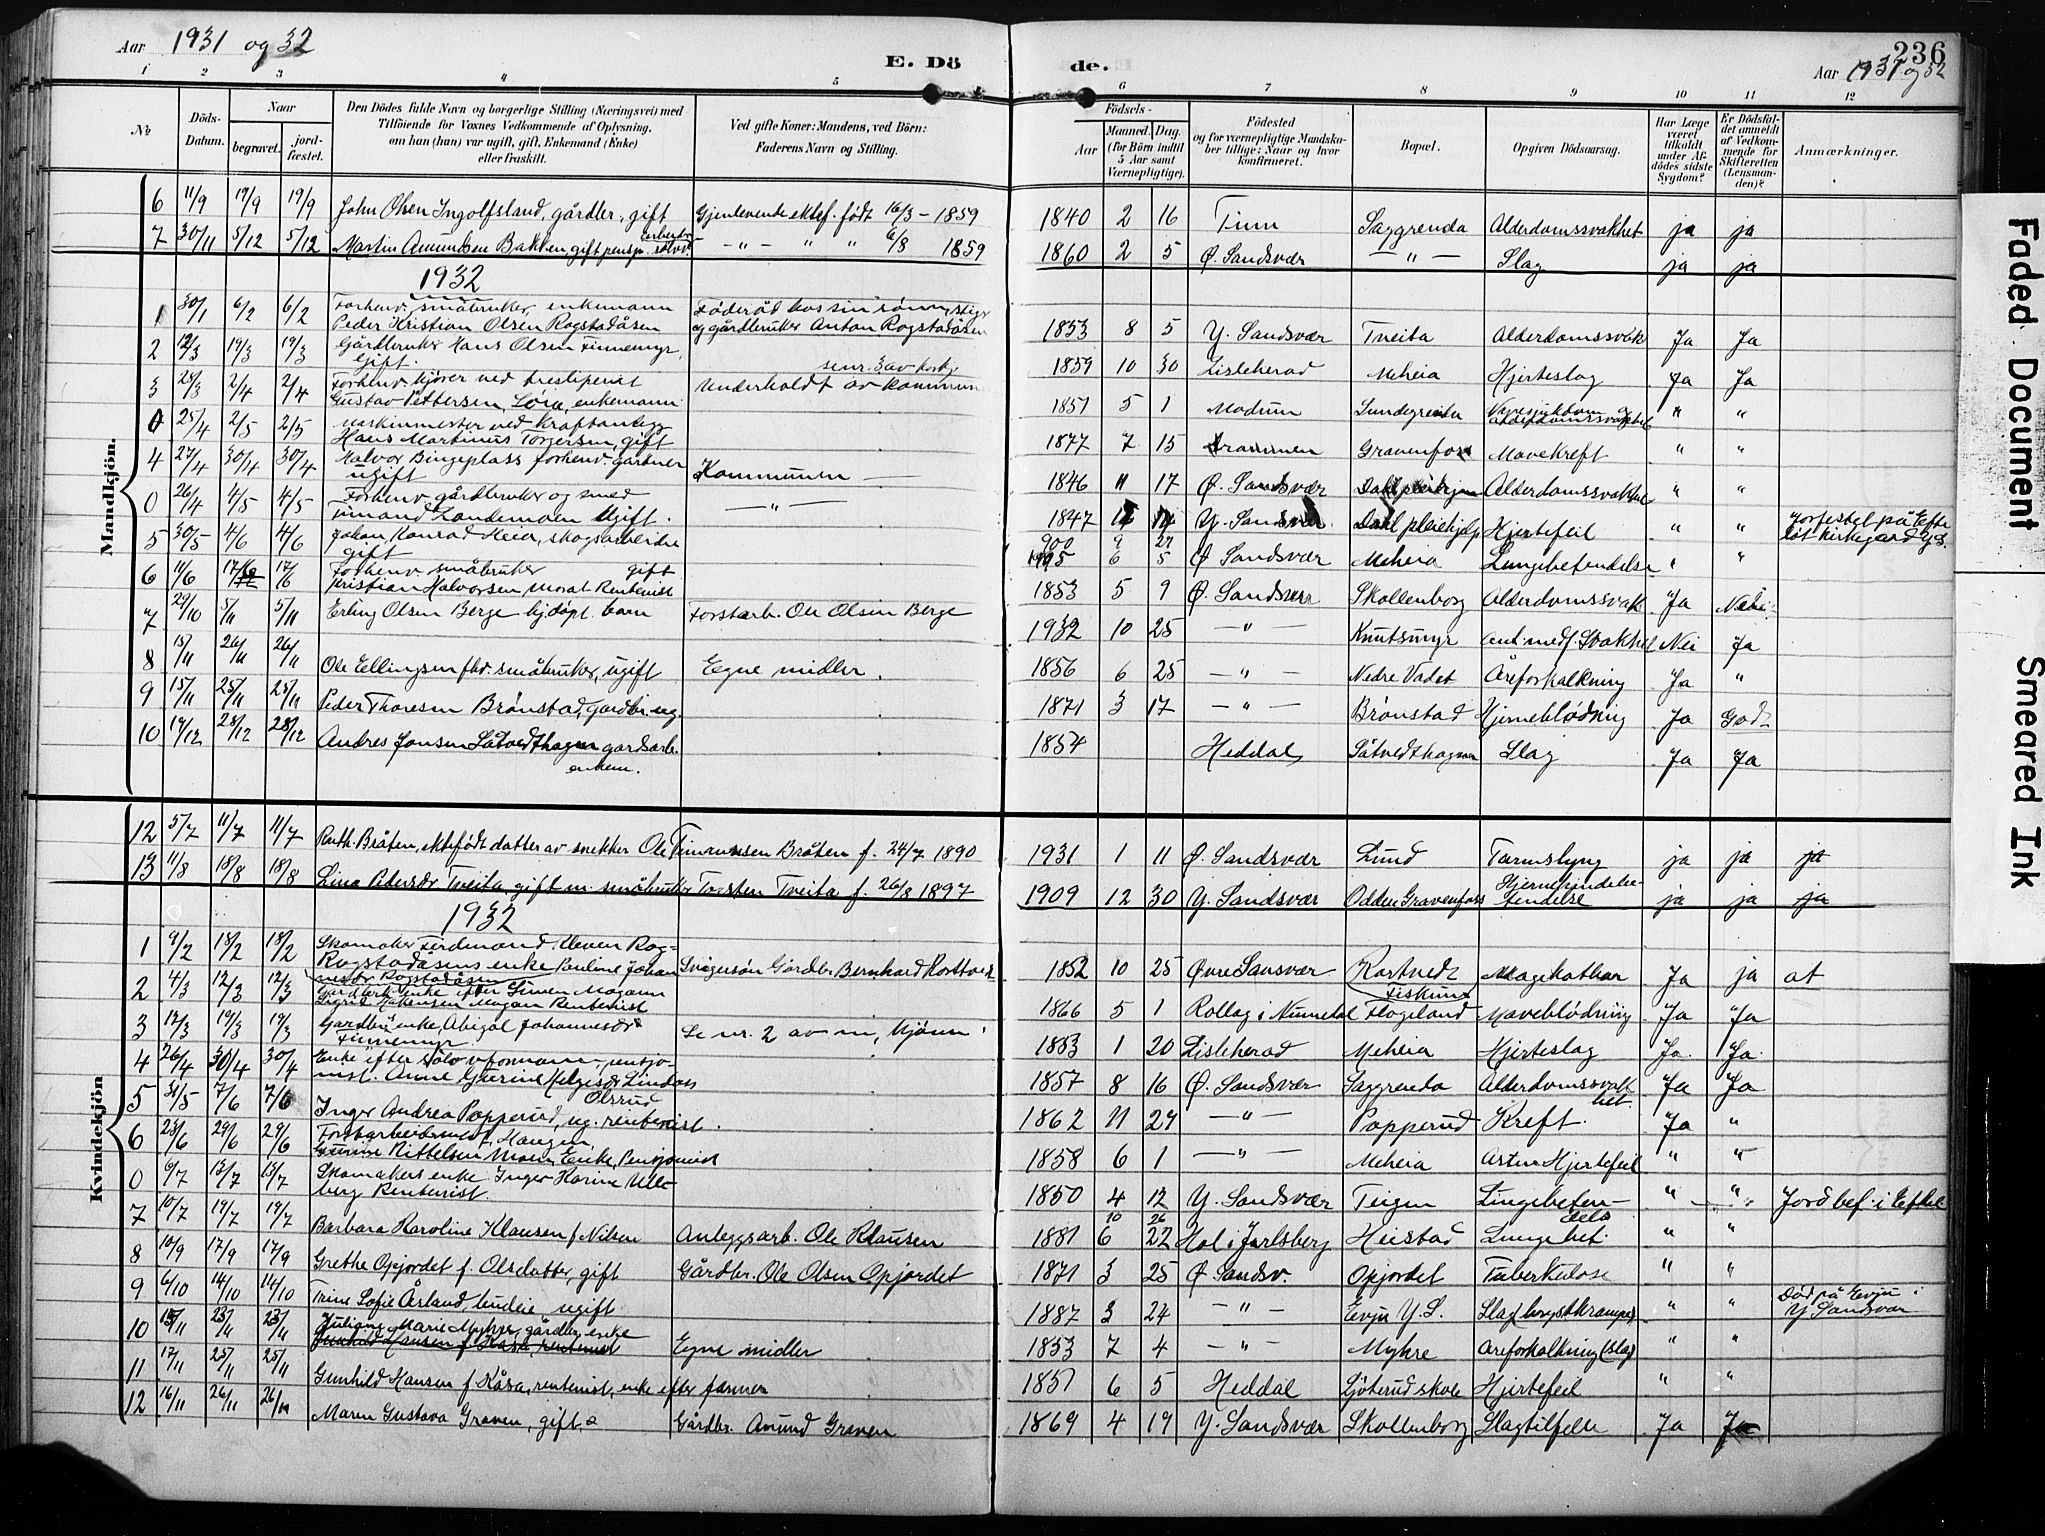 Aar 1931 og 32
E. Dö
de.
236
Aar 1931 og 32
1 2 3 4 5 6 7 8 9 10 11 12
No
Döds-Datum.
Naar
begravet.
jord-fæstet.
Den Dödes fulde Navn og borgerlige Stilling (Næringsvei) med
Tilföiende for Voxnes Vedkommende af Oplysning,
om han (hun) var ugift, gift, Enkemand (Enke)
eller fraskilt.
Ved gifte Koner: Mandens, ved Börn:
Faderens Navn og Stilling.
Födsels-
Aar
Maaned. Dag.
(for Börn indtil
5 Aar samt
Værnepligtige).
Födested
og for værnepligtige Mandska-
ber tillige: Naar og hvor
konfirmeret.
Bopæl.
Opgiven Dödsaarsag.
Har Læge
været
tilkaldt
under Af-
dødes sidste
Sygdom?
Er Dödsfal-
det anmeldt
af Vedkom-
mende for
Skifteretten
(Lensman-
den)?
Anmærkninger.
Mandkjön.
6 11/9 19/9 19/9 John Olsen Ingolfsland, gårdbr., gift Gjenlevende ektef. født 16/3 - 1859 1840 2 16 Tinn Saggrenda Alderdomssvakhet ja ja
7 30/11 5/12 5/12 Martin Amundsen Bakken, gift pensj. arbeider sølvv. - " - " " 6/8 1859 1860 2 5 Ø. Sandsvær - " - Slag ja ja
1932
1 30/1 6/2 6/2 Forhenv. småbruker, enkemann
Peder Kristian Olsen Rogstadåsen Føderåd hos sin sønn
og gårdbruker Anton Rogstadåsen 1853 8 5 Y. Sandsvær Tveita Alderdomssvak Ja Ja
2 12/3 19/3 19/3 Gårdbruker Hans Olsen Finnemyr,
gift. se nr. 3 av kvkj. 1859 10 30 Lisleherad Meheia Hjerteslag Ja Ja
3 28/3 2/4 2/4 Forhenv. kjører ved
Gustav Pettersen, Lora, enkemann Underholdt av kommunen 1851 5 1 Modum Lundegrenda Alderdomssvakhet " "
0 25/4 2/5 2/5 Maskinmester ved Kraftanlegg
Hans Martinus Torgersen, gift 1877 7 15 Drammen Gravenfoss Mavekreft " "
4 27/4 30/4 30/4 Halvor Bingeplass forhenv. gartner
ugift Kommunen 1846 11 17 Ø. Sandsvær Dahl pleiehjem Alderdomssvakhet " "
0 26/4 4/5 4/5 Forhenv. gårdbruker og smed
Timand Landemoen Ugift. - " - 1847 Y. Sandsvær Dahl pleiehjelp Hjertefeil " " Jorfestet på Efte
løt kirkegård Y.S.
5 30/5 4/6 4/6 Johan Konrad Heia, skogsarbeider
gift 1905 6 5 Ø Sandsvær Meheia Lungebetendelse " "
6 11/6 17/6 17/6 Forhenv. småbruker gift
Kristian Halvorsen Morat Rentenist 1853 5 9 Ø. Sandsvær Skollenborg Alderdomssvak Ja Nei
7 29/10 5/11 5/11 Erling Olsen Berge hj.døpt barn Forstarb. Ole Olsen Berge 1932 10 25 - " - Knutsmyr ant. medf. Svakhet Nei Ja
8 15/11 26/11 26/11 Ole Ellingsen fhv. småbruker, ugift Egne midler. 1856 6 25 - " - Nedre Vadet Åreforkalkning Ja "
9 15/11 25/11 25/11 Peder Thoresen Brønstad, gårdbr. ug. 1871 3 17 - " - Brønstad Hjerneblødning Ja Godt
10 19/12 28/12 28/12 Andres Jonsen Såtvedthagen gårdsarb.
enkem. 1854 Heddal Såtvedthagen Slag Ja Ja
Kvindekjön
12 5/7 11/7 11/7 Ruth Bråten, ektefødt datter av snekker Ole Timansen Bråten f. 24/7 1890 1931 1 11 Ø. Sandsvær Lund Tarmslyng ja ja ja
13 11/8 18/8 18/8 Lina Pedersdr Tveita, gift m. småbruker Torsten Tveita f. 26/8 1897 1909 12 30 Y. Sandsvær Odden Gravenfoss Hjernehindebe-
tendelse ja ja ja
1932
1 9/2 18/2 18/2 Skomaker Ferdinand Kleven Rog-
Rogstadåsens enke Pauline Johan
nesdr Rogstadåsen Svigersøn Gårdbr. Bernhard Kortvedt 1852 10 25 Øvre Sansvær Kortvedt Magekatharr Ja ja at
2 4/3 12/3 12/3 Gårdbr. enke efter Simen Mogann
Sigrid Håkensen Mogan Rentenist 1866 5 1 Rollag i Numedal Fiskum
Flogeland Maveblødning Ja Ja
3 12/3 19/3 19/3 Gårdbr. enke, Abigal Johannesdr
Finnemyr Se nr. 2 av m. kjønn 1853 1 20 Lisleherad Meheia Hjerteslag Ja. Ja.
4 26/4 30/4 30/4 Enke efter sølvv.formann, pensjo-
nist. Anne Gurine Helgesdr Lindås 1857 8 16 Ø. Sandsvær Saggrenda Alderdomssvak
het. Ja Ja
5 31/5 7/6 7/6 Olsrud
Inger Andrea Popperud, ug. rentenist. 1862 11 24 - " - Popperud Kreft. Ja "
6 23/6 29/6 29/6 Forstarbeider Haugen,
Gunine Kittelsen Moen, Enke, Pensjonist 1858 6 1 - " - Meheia Hjertefeil " "
0 9/7 15/7 15/7 Skomakers enke Inger Karine Ulle-
berg Rentenist. 1850 4 12 Y. Sandsvær Teigen Lungebeten-
delse " " Jordbef. i Efteløt
7 10/7 19/7 19/7 Barbara Karoline Klausen f. Nilsen Anleggsarb. Ole Klausen 1881 6 22 Hof i Jarlsberg Heistad Lungebet. " "
8 10/9 17/9 17/9 Grethe Opjordet f. Olsdatter, gift Gårdbr. Ole Olsen Opjordet 1871 3 25 Ø Sandsv. Opjordet Tuberkulose " "
9 6/10 14/10 14/10 Trine Sofie Årland, budeie ugift 1887 3 24 - " - Evju Y. S. Slag (brystkrampe) " " Død på Evju i
Y. Sandsvær
10 15/11 23/11 23/11 Juliane Marie Myhre, gårdbr. enke
Gunhild Hansen f. Kåsa, rentenist Egne midler 1853 7 4 - " - Myhre Åreforkalkning (slag) " "
11 17/11 25/11 25/11 Gunhild Hansen f. Kåsa, rentenist, enke efter farmer 1851 6 5 Heddal Ljøterud skole Hjertefeil " "
12 16/11 26/11 26/11 Maren Gustava Graven, gift, Gårdbr. Amund Graven 1869 4 19 Y. Sandsvær Skollenborg Slagtilfelle Ja Ja
Faded Document
Smeared Ink